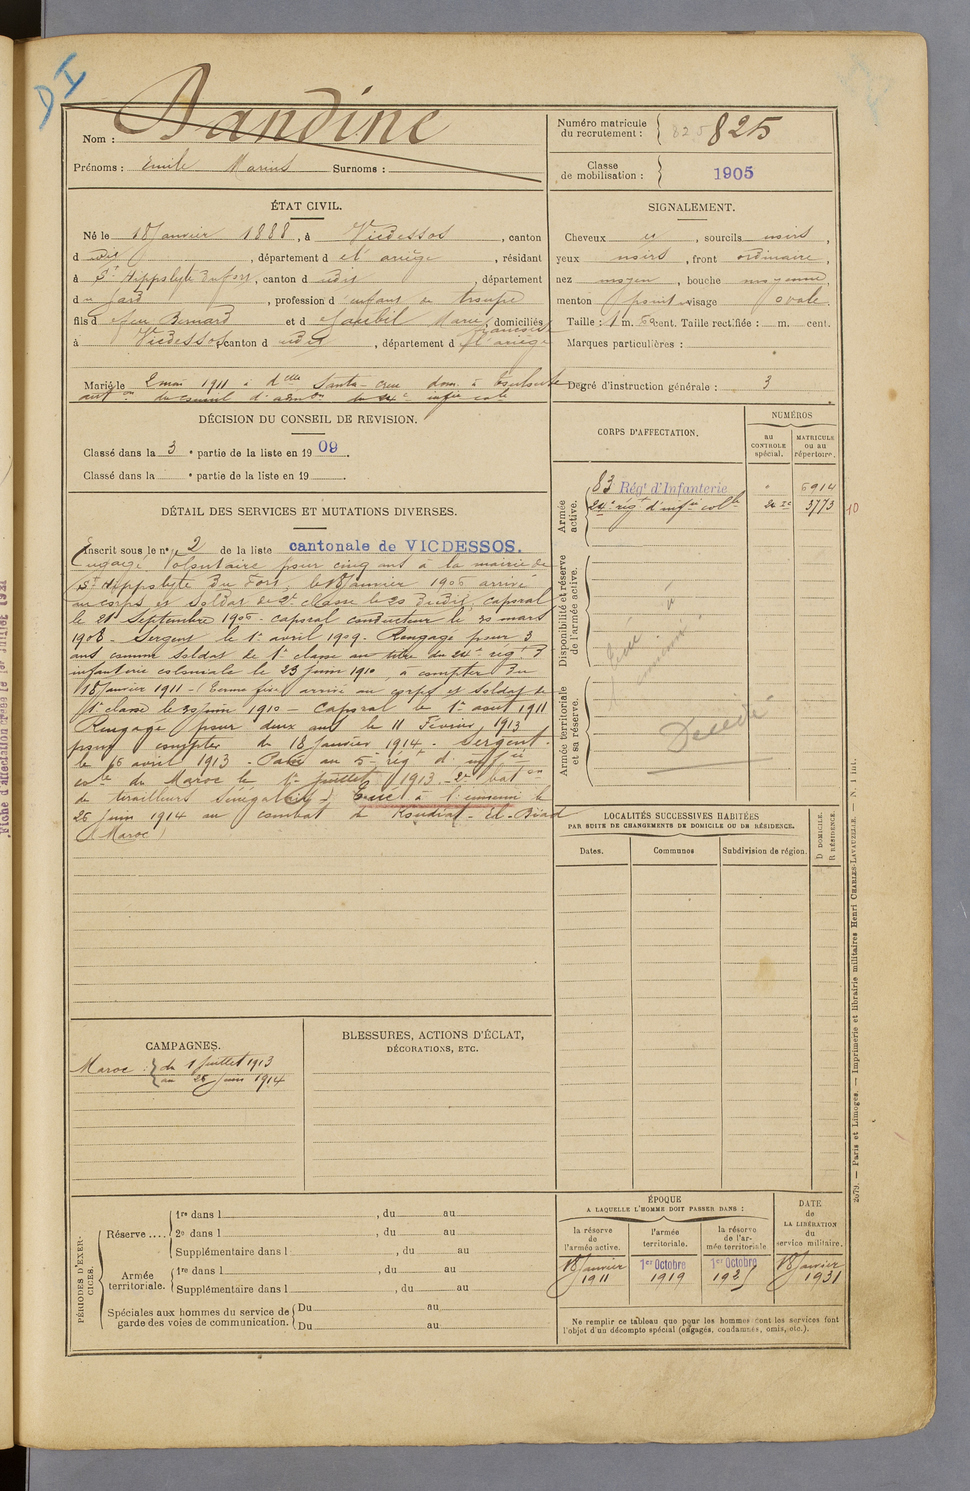 DI
Nom : Dandine
Prénoms : Emile Marius Surnoms :
Numéro matricule du recrutement : 825 825
Classe de mobilisation : 1905
ÉTAT CIVIL.
Né le 18 Janvier 1888, à Vicdessos, canton
d udit, département d e l'ariège, résidant
à St Hippolyte du fort, canton d udit, département
d u Gard, profession d enfant de troupe
fils d e feu Bernard et d e Marie Françoise, domiciliés
à Vicdessos, canton d udit, département d e l'ariège
Marié le 2 mai 1911 à delle Santa-Creu dom. à
auton du conseil d'admon du 24e infie cole
SIGNALEMENT.
Cheveux et, sourcils noirs,
yeux noirs, front ordinaire,
nez moyen, bouche moyenne,
menton point visage ovale.
Taille : 1 m. cent. Taille rectifiée : m. cent.
Marques particulières :
Degré d'instruction générale : 3
DÉCISION DU CONSEIL DE REVISION.
Classé dans la 3e partie de la liste en 1909.
Classé dans la e partie de la liste en 19 .
DÉTAIL DES SERVICES ET MUTATIONS DIVERSES.
Inscrit sous le no 2 de la liste cantonale de VICDESSOS.
Engagé Volontaire pour cinq ans à la mairie de
St Hippolyte du Fort, le 18 Janvier 1906 arrivé
au corps et Soldat de 2e classe le 20 dudit, caporal
le 21 Septembre 1906 - caporal conducteur le 20 mars
1908 - Sergent le 1er avril 1909 - Rengagé pour 3
ans comme Soldat de 1e classe au titre du 24e régt d'
infanterie coloniale le 23 juin 1910, à compter du
18 Janvier 1911 - arrivé au corps et soldat de
1e classe le 30 Juin 1910 - Caporal le 1er aout 1911
Rengagé pour deux ans le 11 Février 1913
pour compter du 18 Janvier 1914 - Sergent
le 16 avril 1913 - Passé au 5e régt d'infie
cole du Maroc le 1er Juillet 1913 - 2e baton
de tirailleurs Sénégalais - Tué à l'ennemi le
26 Juin 1914 au combat de Koudiat-El-Biad
(Maroc)
CORPS D'AFFECTATION.
NUMÉROS
au CONTROLE spécial.
MATRICULE ou au répertoire.
Armée active.
83 Régt d'Infanterie " 6914
24e régt d'infie cole 24 20 3773
10
Disponibilité et réserve de l'armée active.
Tué à l'ennemi
Armée territoriale et sa réserve.
Décédé
LOCALITÉS SUCCESSIVES HABITÉES
PAR SUITE DE CHANGEMENTS DE DOMICILE OU DE RÉSIDENCE.
Dates. Communes Subdivision de région.
D DOMICILE.
R RÉSIDENCE.
CAMPAGNES.
Maroc : du 1 Juillet 1913
au 26 Juin 1914
BLESSURES, ACTIONS D'ÉCLAT,
DÉCORATIONS, ETC.
PÉRIODES D'EXERCICES.
Réserve....
1re dans l , du au
2e dans l , du au
Supplémentaire dans l , du au
Armée territoriale.
1re dans l , du au
Supplémentaire dans l , du au
Spéciales aux hommes du service de garde des voies de communication.
Du au
Du au
ÉPOQUE
A LAQUELLE L'HOMME DOIT PASSER DANS :
la réserve de l'armée active.
l'armée territoriale.
la réserve de l'armée territoriale
DATE de LA LIBÉRATION du service militaire.
18 Janvier 1911
1er Octobre 1919
1er Octobre 1925
18 Janvier 1931
Ne remplir ce tableau que pour les hommes dont les services font
l'objet d'un décompte spécial (engagés, condamnés, omis, etc.).
2679. — Paris et Limoges. — Imprimerie et librairie militaires Henri CHARLES-LAVAUZELLE. N. 1 int.
Fiche d'affectation créée le 1er Juillet 1931